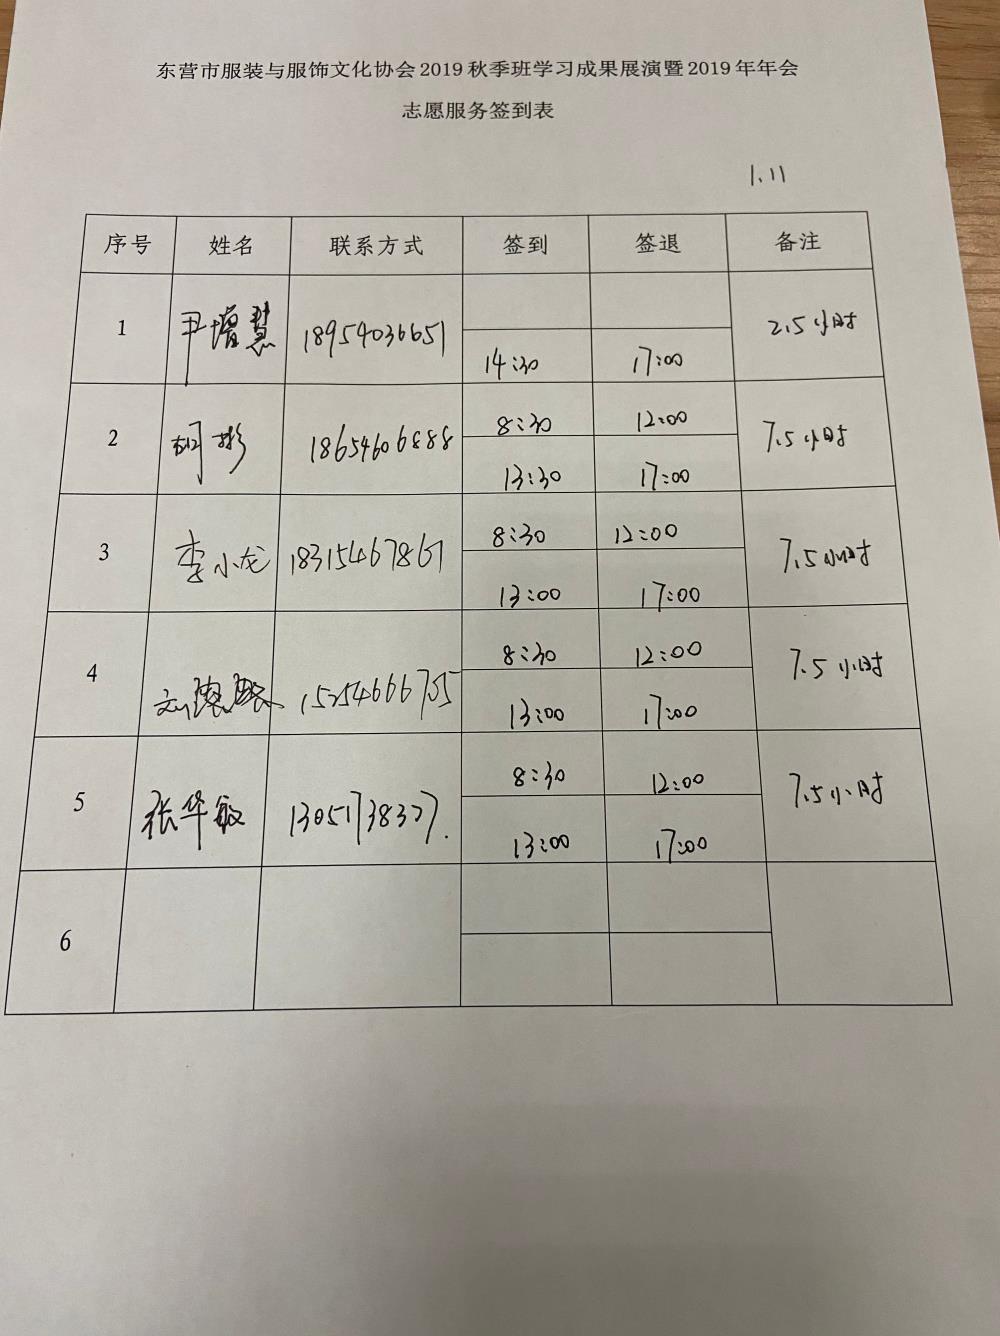 东营市服装与服饰文化协会2019秋季班学习成果展演暨2019年年会
志愿服务签到表
1.11
序号 姓名 联系方式 签到 签退 备注
1 尹增慧 18954036651 14:30 17:00 2.5小时
2 胡彬 18654606888 8:30 12:00 7.5小时
13:30 17:00
3 李小龙 18315467861 8:30 12:00 7.5小时
13:00 17:00
4 刘 15254666755 8:30 12:00 7.5小时
13:00 17:00
5 张华敏 13051738377. 8:30 12:00 7.5小时
13:00 17:00
6